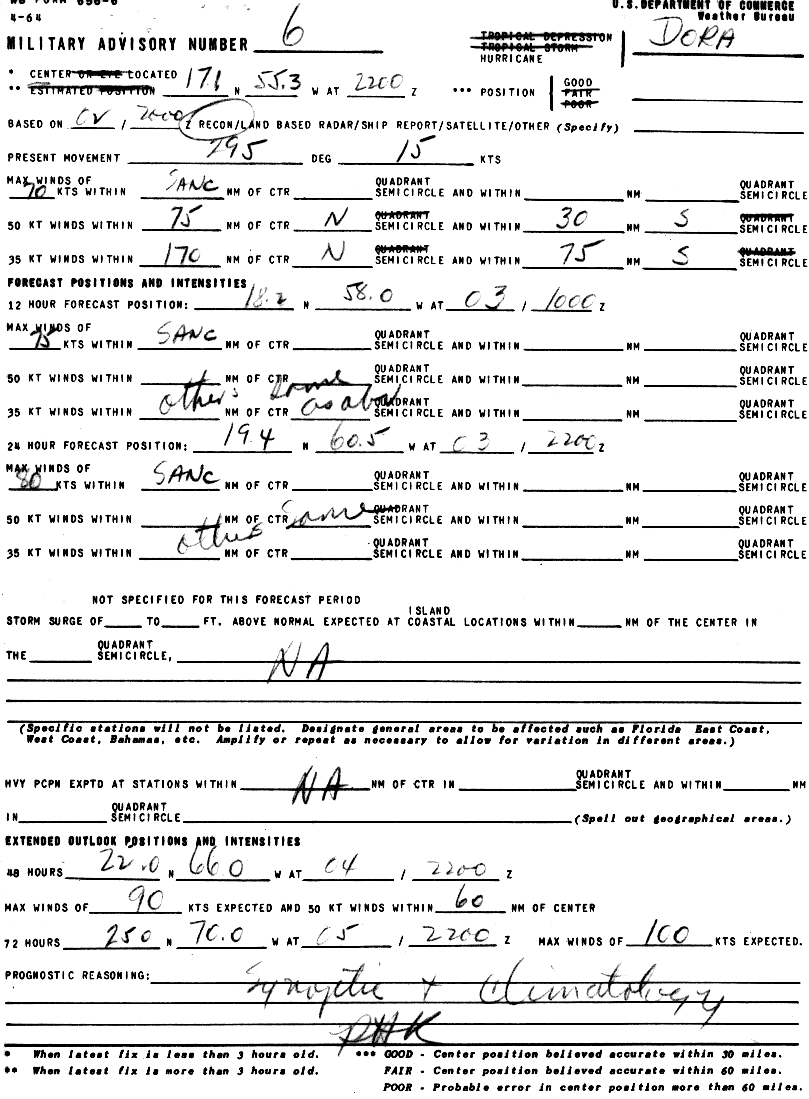 WB FORM 630-6 U.S. DEPARTMENT OF COMMERCE
4-64 Weather Bureau
MILITARY ADVISORY NUMBER 6 TROPICAL DEPRESSION DORA
TROPICAL STORM
HURRICANE
* CENTER OR EYE LOCATED 17.1 N 55.3 W AT 2200 Z *** POSITION GOOD
** ESTIMATED POSITION FAIR
POOR
BASED ON 02 / 2000 Z RECON/LAND BASED RADAR/SHIP REPORT/SATELLITE/OTHER (Specify)
PRESENT MOVEMENT 295 DEG 15 KTS
MAX WINDS OF QUADRANT QUADRANT
70 KTS WITHIN SANC NM OF CTR SEMICIRCLE AND WITHIN NM SEMICIRCLE
50 KT WINDS WITHIN 75 NM OF CTR N QUADRANT SEMICIRCLE AND WITHIN 30 NM S QUADRANT SEMICIRCLE
35 KT WINDS WITHIN 170 NM OF CTR N QUADRANT SEMICIRCLE AND WITHIN 75 NM S QUADRANT SEMICIRCLE
FORECAST POSITIONS AND INTENSITIES
12 HOUR FORECAST POSITION: 18.2 N 58.0 W AT 03 / 1000 Z
MAX WINDS OF QUADRANT QUADRANT
75 KTS WITHIN SANC NM OF CTR SEMICIRCLE AND WITHIN NM SEMICIRCLE
50 KT WINDS WITHIN NM OF CTR QUADRANT SEMICIRCLE AND WITHIN NM QUADRANT SEMICIRCLE
others same as above
35 KT WINDS WITHIN NM OF CTR QUADRANT SEMICIRCLE AND WITHIN NM QUADRANT SEMICIRCLE
24 HOUR FORECAST POSITION: 19.4 N 60.5 W AT 03 / 2200 Z
MAX WINDS OF QUADRANT QUADRANT
80 KTS WITHIN SANC NM OF CTR SEMICIRCLE AND WITHIN NM SEMICIRCLE
50 KT WINDS WITHIN NM OF CTR QUADRANT SEMICIRCLE AND WITHIN NM QUADRANT SEMICIRCLE
others Same
35 KT WINDS WITHIN NM OF CTR QUADRANT SEMICIRCLE AND WITHIN NM QUADRANT SEMICIRCLE
NOT SPECIFIED FOR THIS FORECAST PERIOD
ISLAND
STORM SURGE OF TO FT. ABOVE NORMAL EXPECTED AT COASTAL LOCATIONS WITHIN NM OF THE CENTER IN
THE QUADRANT SEMICIRCLE, NA
(Specific stations will not be listed. Designate general areas to be affected such as Florida East Coast,
West Coast, Bahamas, etc. Amplify or repeat as necessary to allow for variation in different areas.)
HVY PCPN EXPTD AT STATIONS WITHIN NA NM OF CTR IN QUADRANT SEMICIRCLE AND WITHIN NM
IN QUADRANT SEMICIRCLE (Spell out geographical areas.)
EXTENDED OUTLOOK POSITIONS AND INTENSITIES
48 HOURS 22.0 N 66.0 W AT 04 / 2200 Z
MAX WINDS OF 90 KTS EXPECTED AND 50 KT WINDS WITHIN 60 NM OF CENTER
72 HOURS 25.0 N 70.0 W AT 05 / 2200 Z MAX WINDS OF 100 KTS EXPECTED.
PROGNOSTIC REASONING: Synoptic + Climatology
PHK
* When latest fix is less than 3 hours old. *** GOOD - Center position believed accurate within 30 miles.
** When latest fix is more than 3 hours old. FAIR - Center position believed accurate within 60 miles.
POOR - Probable error in center position more than 60 miles.